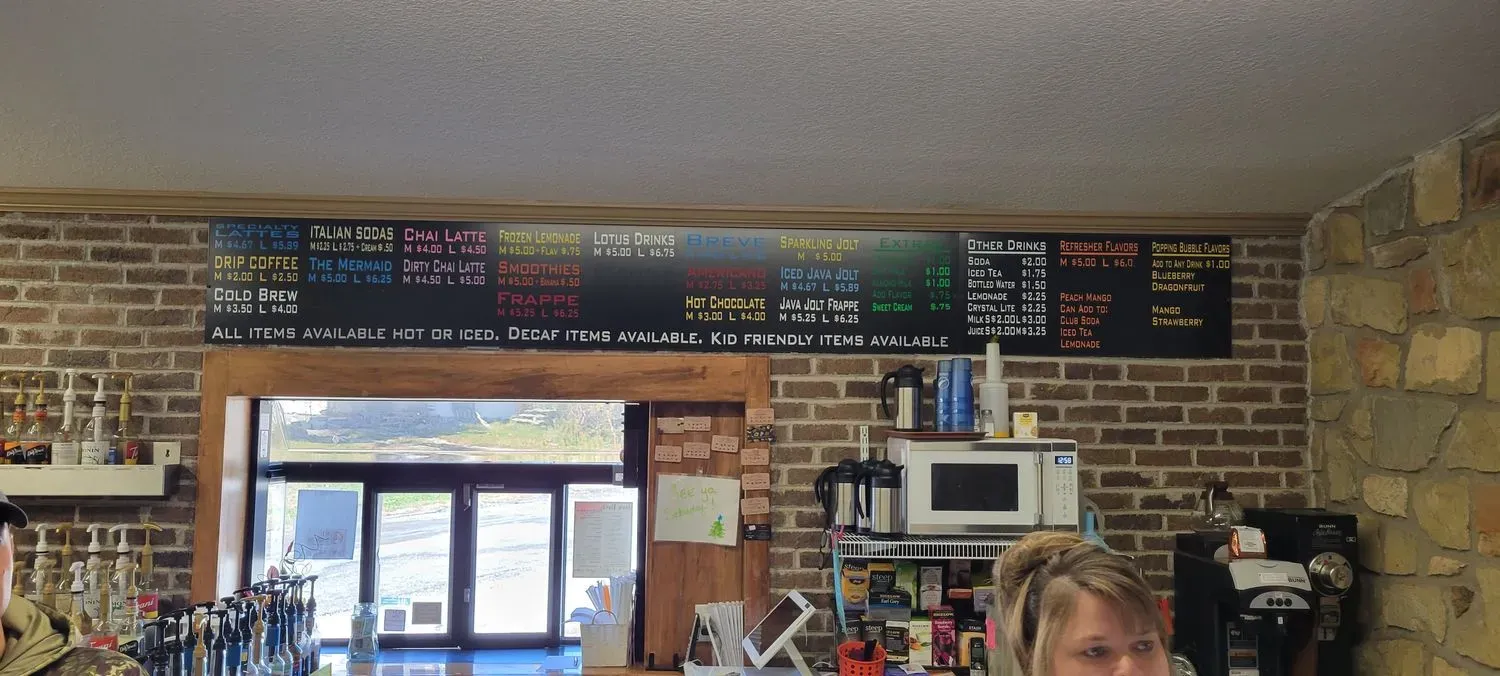 SPECIALTY
LATTES
M $4.67 L $5.89
DRIP COFFEE
M $2.00 L $2.50
COLD BREW
M $3.50 L $4.00
ITALIAN SODAS
M $2.25 L $2.75 + CREAM $.50
THE MERMAID
M $5.00 L $6.25
CHAI LATTE
M $4.00 L $4.50
DIRTY CHAI LATTE
M $4.50 L $5.00
FROZEN LEMONADE
M $5.00 + FLAV $.75
SMOOTHIES
M $5.00 + BANANA $.50
FRAPPE
M $5.25 L $6.25
LOTUS DRINKS
M $5.00 L $6.75
BREVE
AMERICANO
M $2.75 L $3.25
HOT CHOCOLATE
M $3.00 L $4.00
SPARKLING JOLT
M $5.00
ICED JAVA JOLT
M $4.67 L $5.89
JAVA JOLT FRAPPE
M $5.25 L $6.25
EXTRAS
$1.00
ALMOND MILK $1.00
ADD FLAVOR $.75
SWEET CREAM $.75
ALL ITEMS AVAILABLE HOT OR ICED. DECAF ITEMS AVAILABLE. KID FRIENDLY ITEMS AVAILABLE
OTHER DRINKS
SODA $2.00
ICED TEA $1.75
BOTTLED WATER $1.50
LEMONADE $2.25
CRYSTAL LITE $2.25
MILK S$2.00L$3.00
JUICE S$2.00M$3.25
REFRESHER FLAVORS
M $5.00 L $6.0
PEACH MANGO
CAN ADD TO:
CLUB SODA
ICED TEA
LEMONADE
POPPING BUBBLE FLAVORS
ADD TO ANY DRINK $1.00
BLUEBERRY
DRAGONFRUIT
MANGO
STRAWBERRY
See ya
Saturday!
12:58
BUNN
BUNN
steep
steep
Earl Grey
steep
BIGELOW
STASH